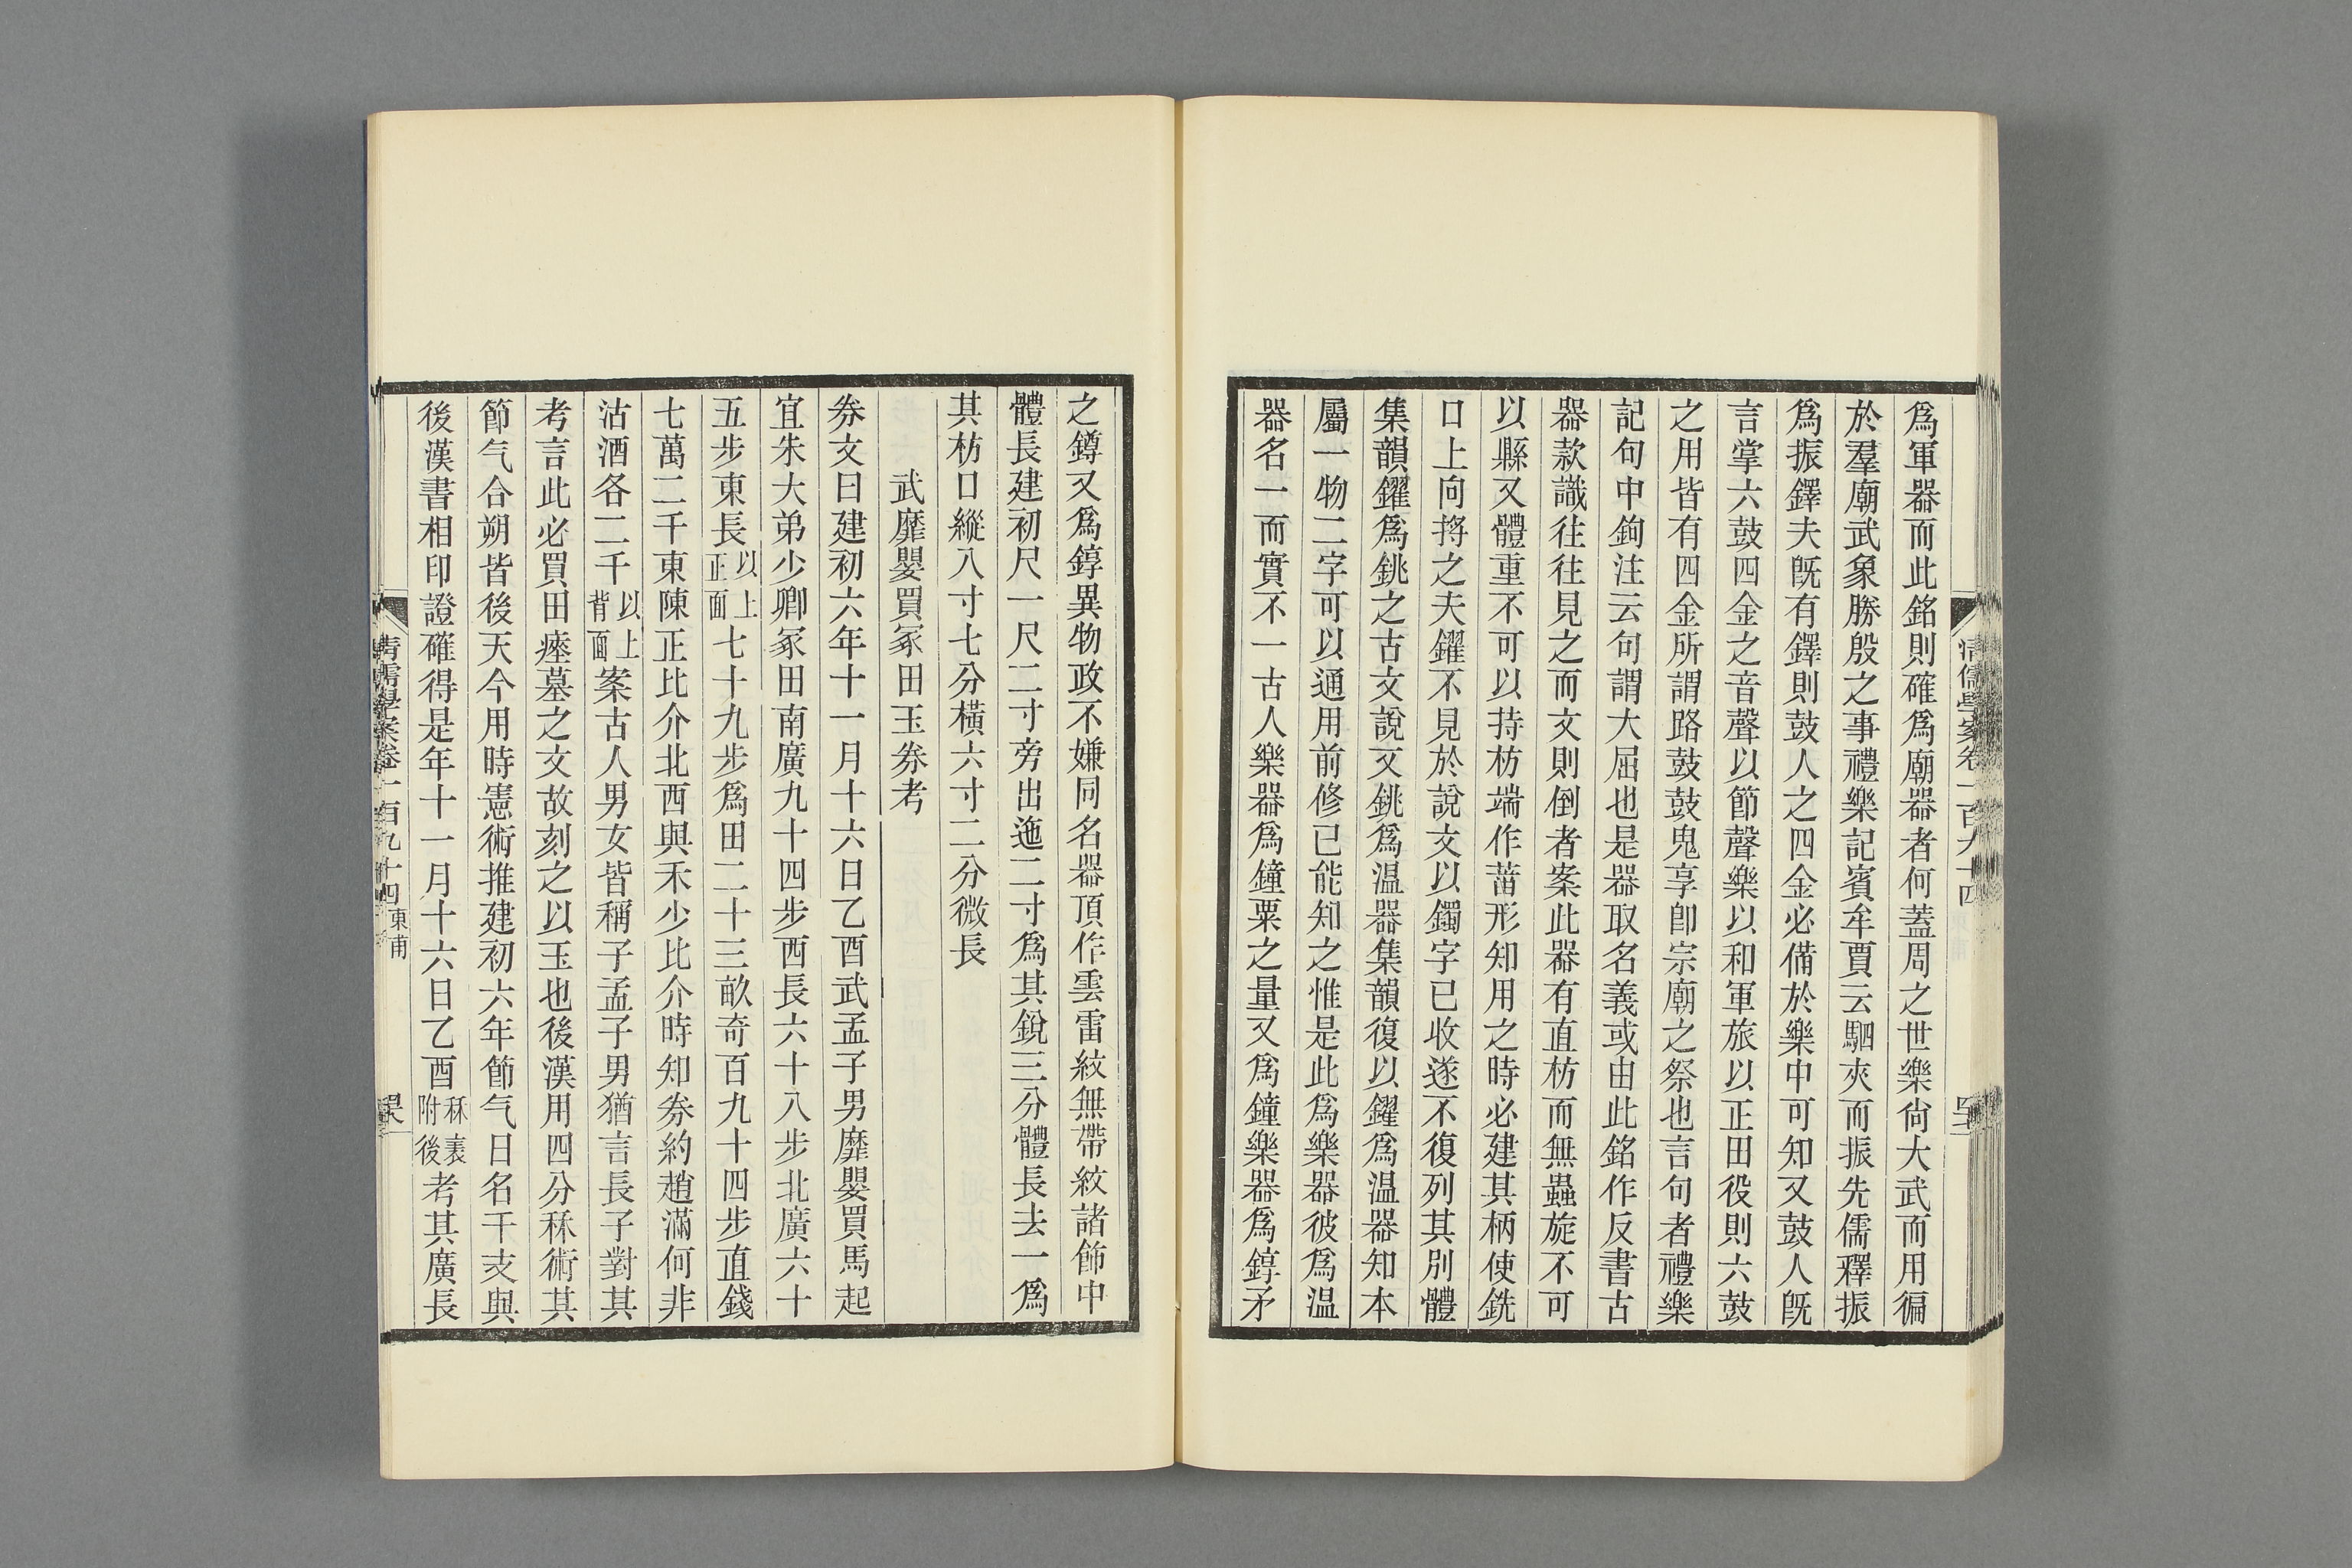 爲軍器而此銘則確爲廟器者何蓋周之世樂尙大武而用徧
於羣廟武象勝殷之事禮樂記賓牟賈云駟夾而振先儒釋振
爲振鐸夫旣有鐸則鼓人之四金必備於樂中可知又鼓人旣
言掌六鼓四金之音聲以節聲樂以和軍旅以正田役則六鼓
之用皆有四金所謂路鼓鼓鬼享卽宗廟之祭也言句者禮樂
記句中鉤注云句謂大屈也是器取名義或由此銘作反書古
器款識往往見之而文則倒者案此器有直枋而無蟲旋不可
以縣又體重不可以持枋端作菑形知用之時必建其柄使銑
口上向捋之夫鑃不見於說文以鐲字已收遂不復列其別體
集韻鑃爲銚之古文說文銚爲温器集韻復以鑃爲温器知本
屬一物二字可以通用前修已能知之惟是此爲樂器彼爲温
器名一而實不一古人樂器爲鐘粟之量又爲鐘樂器爲錞矛
之鐏又爲錞異物政不嫌同名器頂作雲雷紋無帶紋諸飾中
體長建初尺一尺二寸旁出迤二寸爲其銳三分體長去一爲
其枋口縱八寸七分橫六寸二分微長
武靡嬰買冢田玉券考
券文曰建初六年十一月十六日乙酉武孟子男靡嬰買馬起
宜朱大弟少卿冢田南廣九十四步西長六十八步北廣六十
五步東長以上正面七十九步爲田二十三畝奇百九十四步直錢
七萬二千東陳正比介北西與禾少比介時知券約趙滿何非
沽酒各二千以上背面案古人男女皆稱子孟子男猶言長子對其
考言此必買田瘞墓之文故刻之以玉也後漢用四分秝術其
節气合朔皆後天今用時憲術推建初六年節气日名干支與
後漢書相印證確得是年十一月十六日乙酉秝表附後考其廣長
清儒學案卷一百九十四 東甫